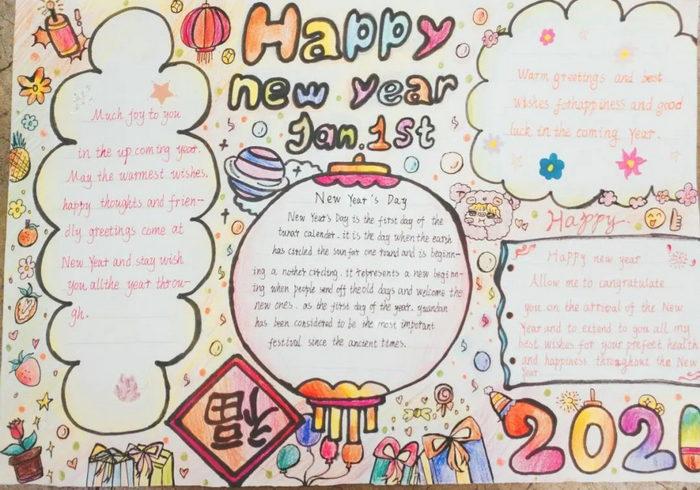 Happy
new year
Jan.1st
Much joy to you
in the up coming year.
May the warmest wishes.
happy thoughts and frien-
dly greetings come at
New Year and stay wish
you all the year throu-
gh.
Warm greetings and best
wishes forhappiness and good
luck in the coming Year.
New Year's Day
New Year's Day is the first day of the
lunar calender. it is the day when the earsh
has circled the sun for one round and is beginn-
ing a nother circling. it represents a new begi nn-
ing when people send off the old days and welcome the
new ones. as the first day of the year. yuandan
has been considered to be the most important
festival since the ancient times.
Happy
Happy new year
Allow me to cangratulate
you on the arrival of the New
Year and to extend to you all my
best wishes for your prefect health
and happiness throughout the New
Year
福
202